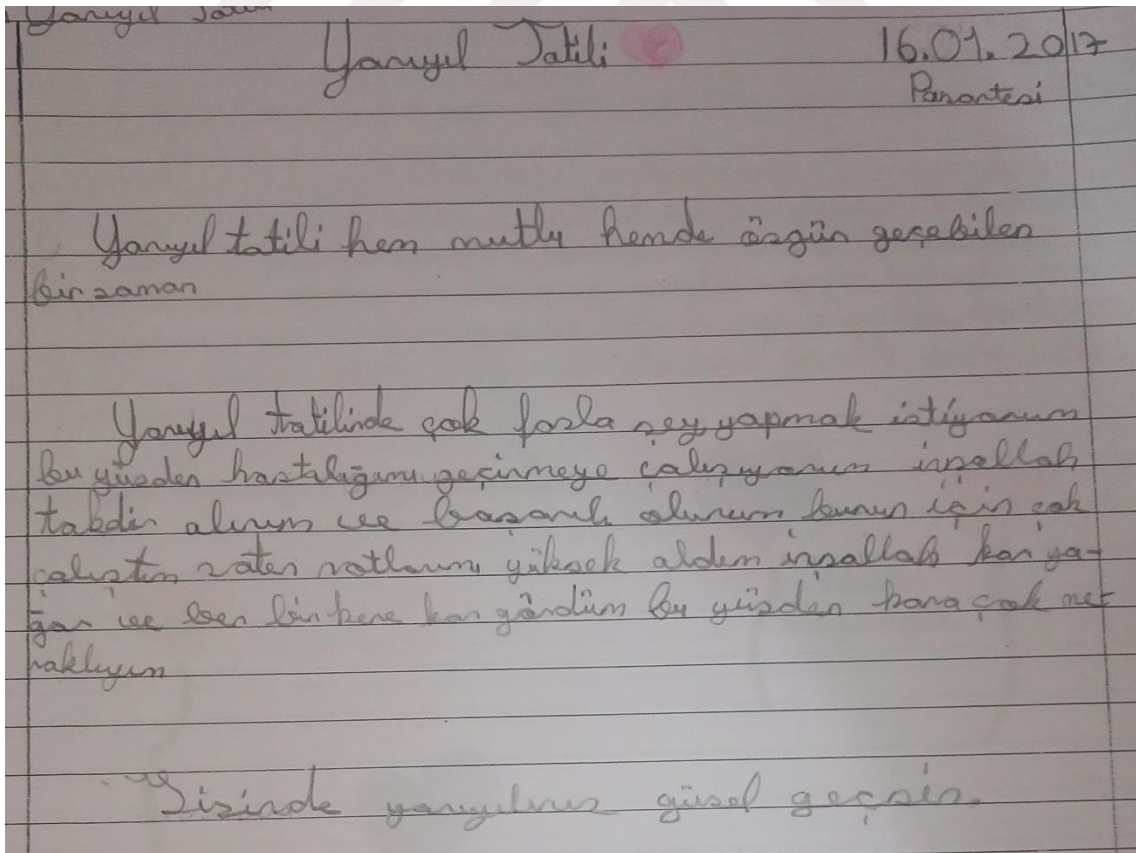 Yarıyıl Tatili 16.01.2017
Pazartesi
Yarıyıl tatili hem mutlu hemde özgün geçebilen
bir zaman
Yarıyıl tatilinde çok fazla şey yapmak istiyorum
bu yüzden hastalığımı geçirmeye çalışıyorum inşallah
takdir alırım ve başarılı olurum bunun için çok
çalıştım zaten notlarımı yüksek aldım inşallah kar ya-
ğar ve ben bir kere kar gördüm bu yüzden kara çok me-
raklıyım
Sizinde yarıyılınız güzel geçsin.